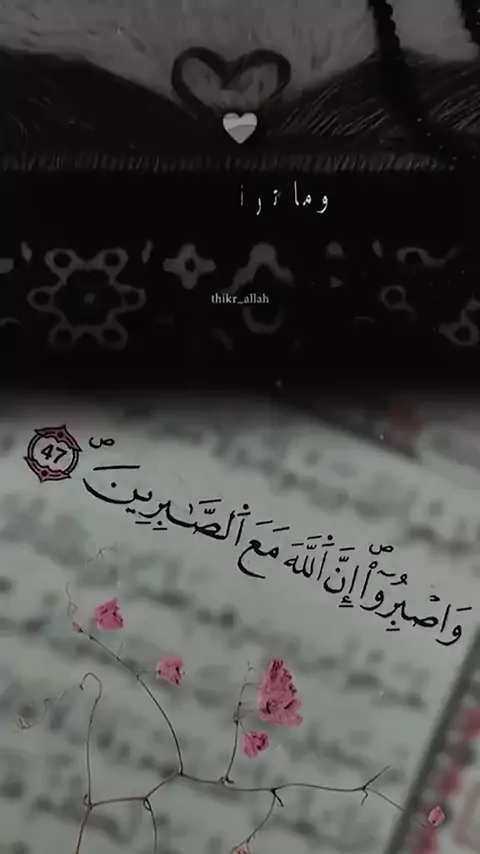 وما ترا
thikr_allah
وَاصْبِرُوٓاْ إِنَّ ٱللَّهَ مَعَ ٱلصَّـٰبِرِينَ 47